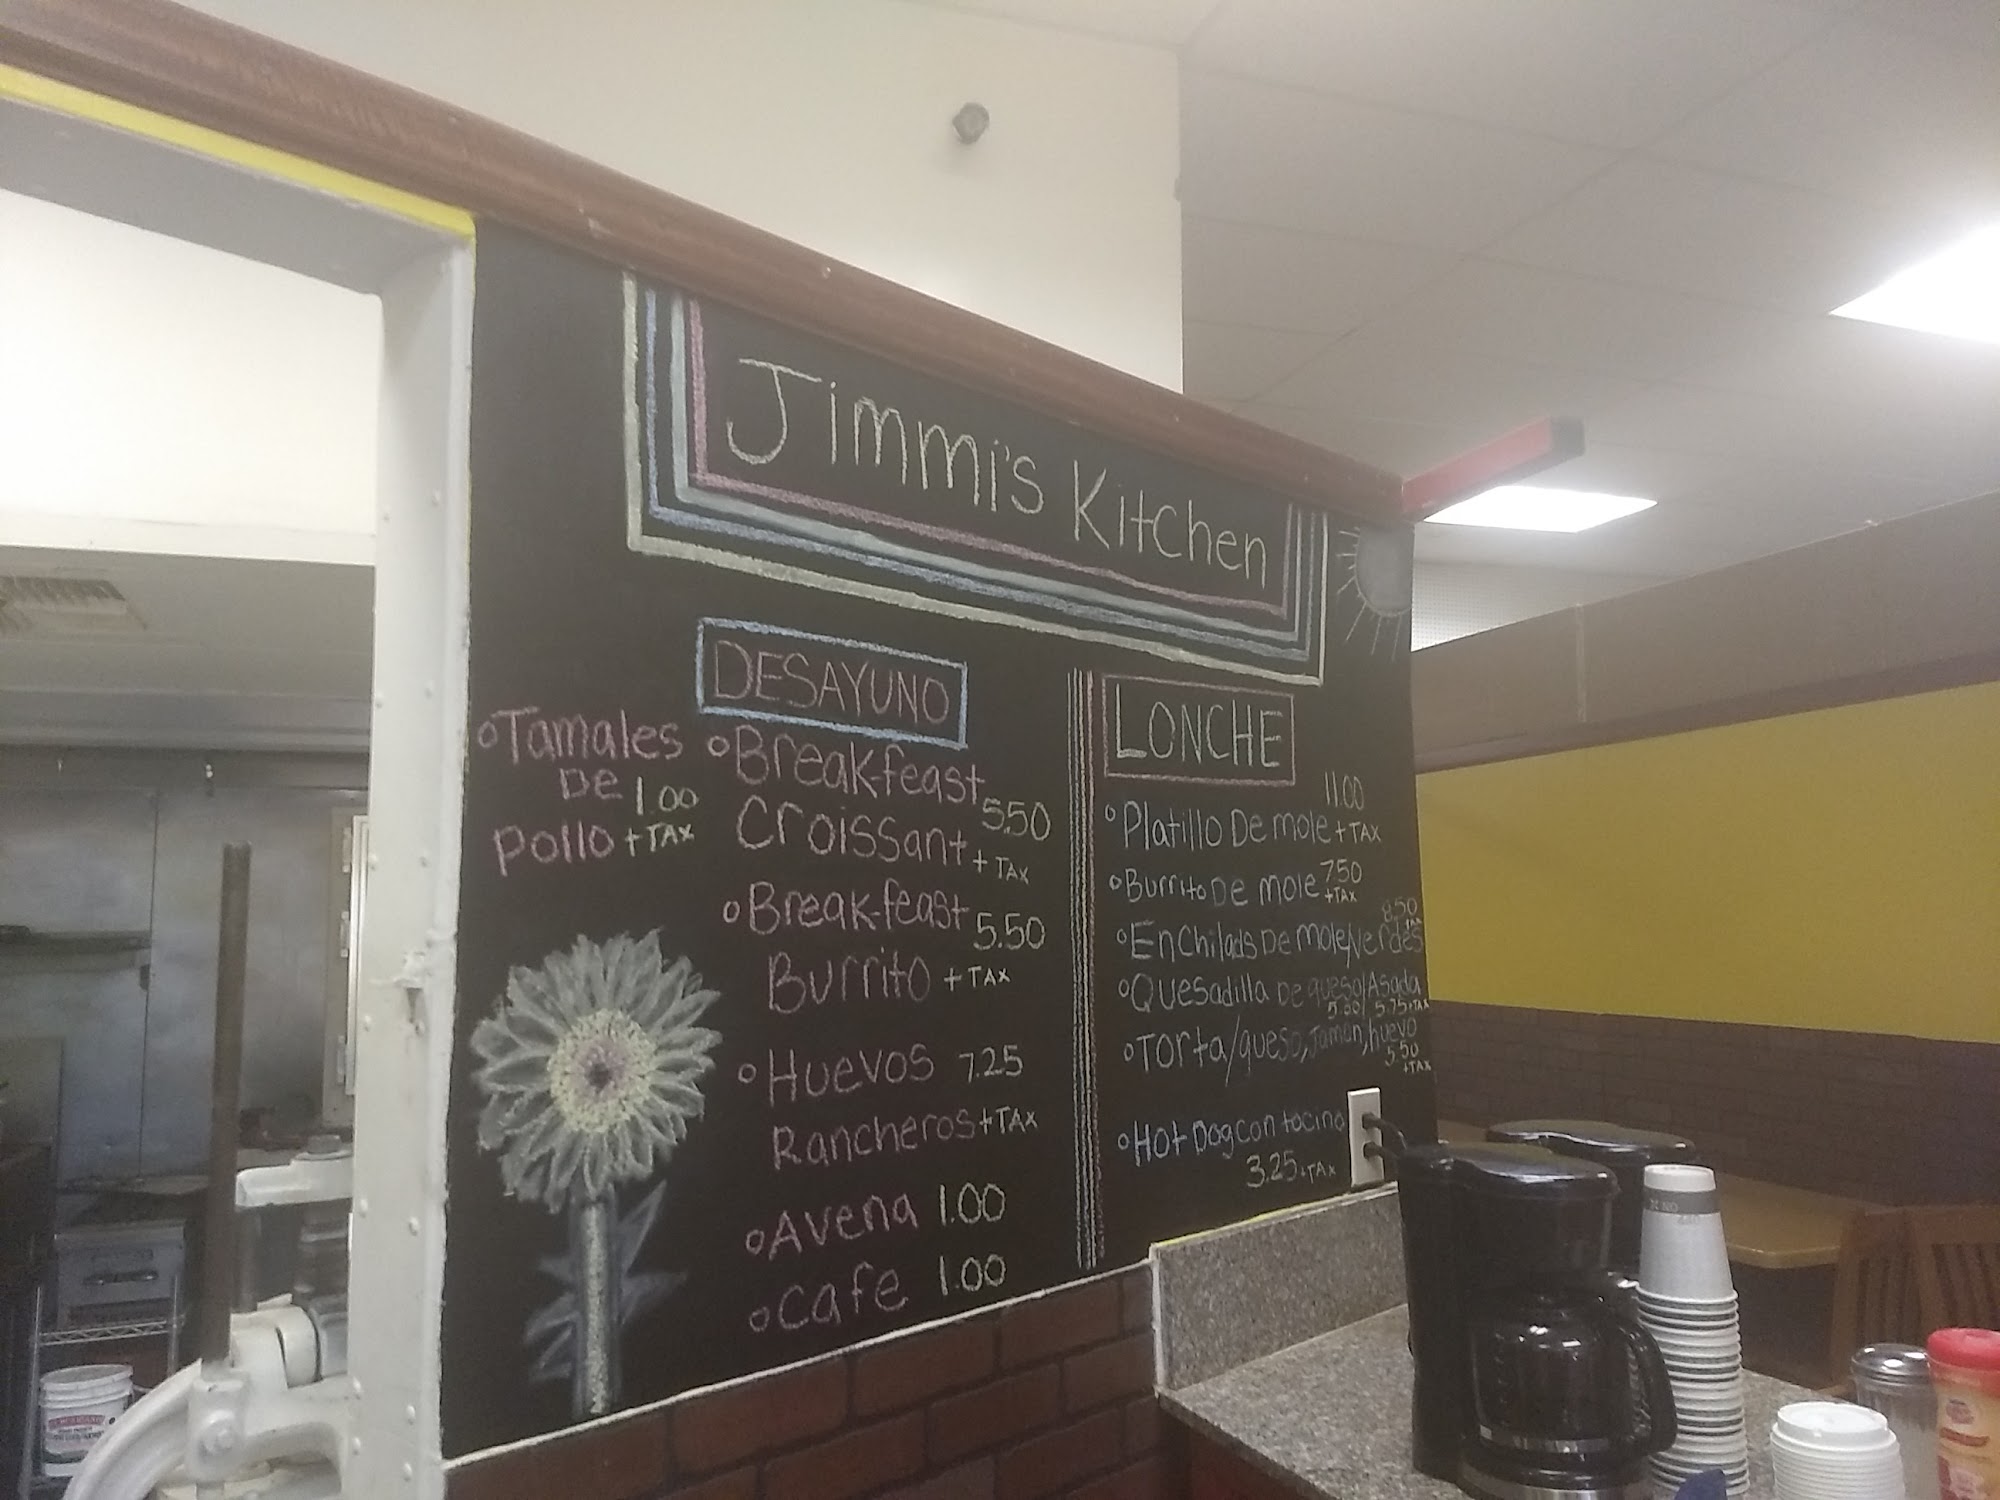 Jimmi's Kitchen
DESAYUNO
°Tamales
De 1.00
pollo +TAX
°Break-feast
Croissant 5.50
+ TAX
°Break-feast
Burrito 5.50
+ TAX
°Huevos 7.25
Rancheros +TAX
°Avena 1.00
°cafe 1.00
LONCHE
11.00
°Platillo De mole +TAX
°Burrito De mole 7.50
+TAX
8.50
°Enchilads De mole/verdes
°Quesadilla De queso/Asada
5.75+TAX
°Torta/queso, Jamon, huevo
5.50
+TAX
°Hot Dog con tocino
3.25+TAX